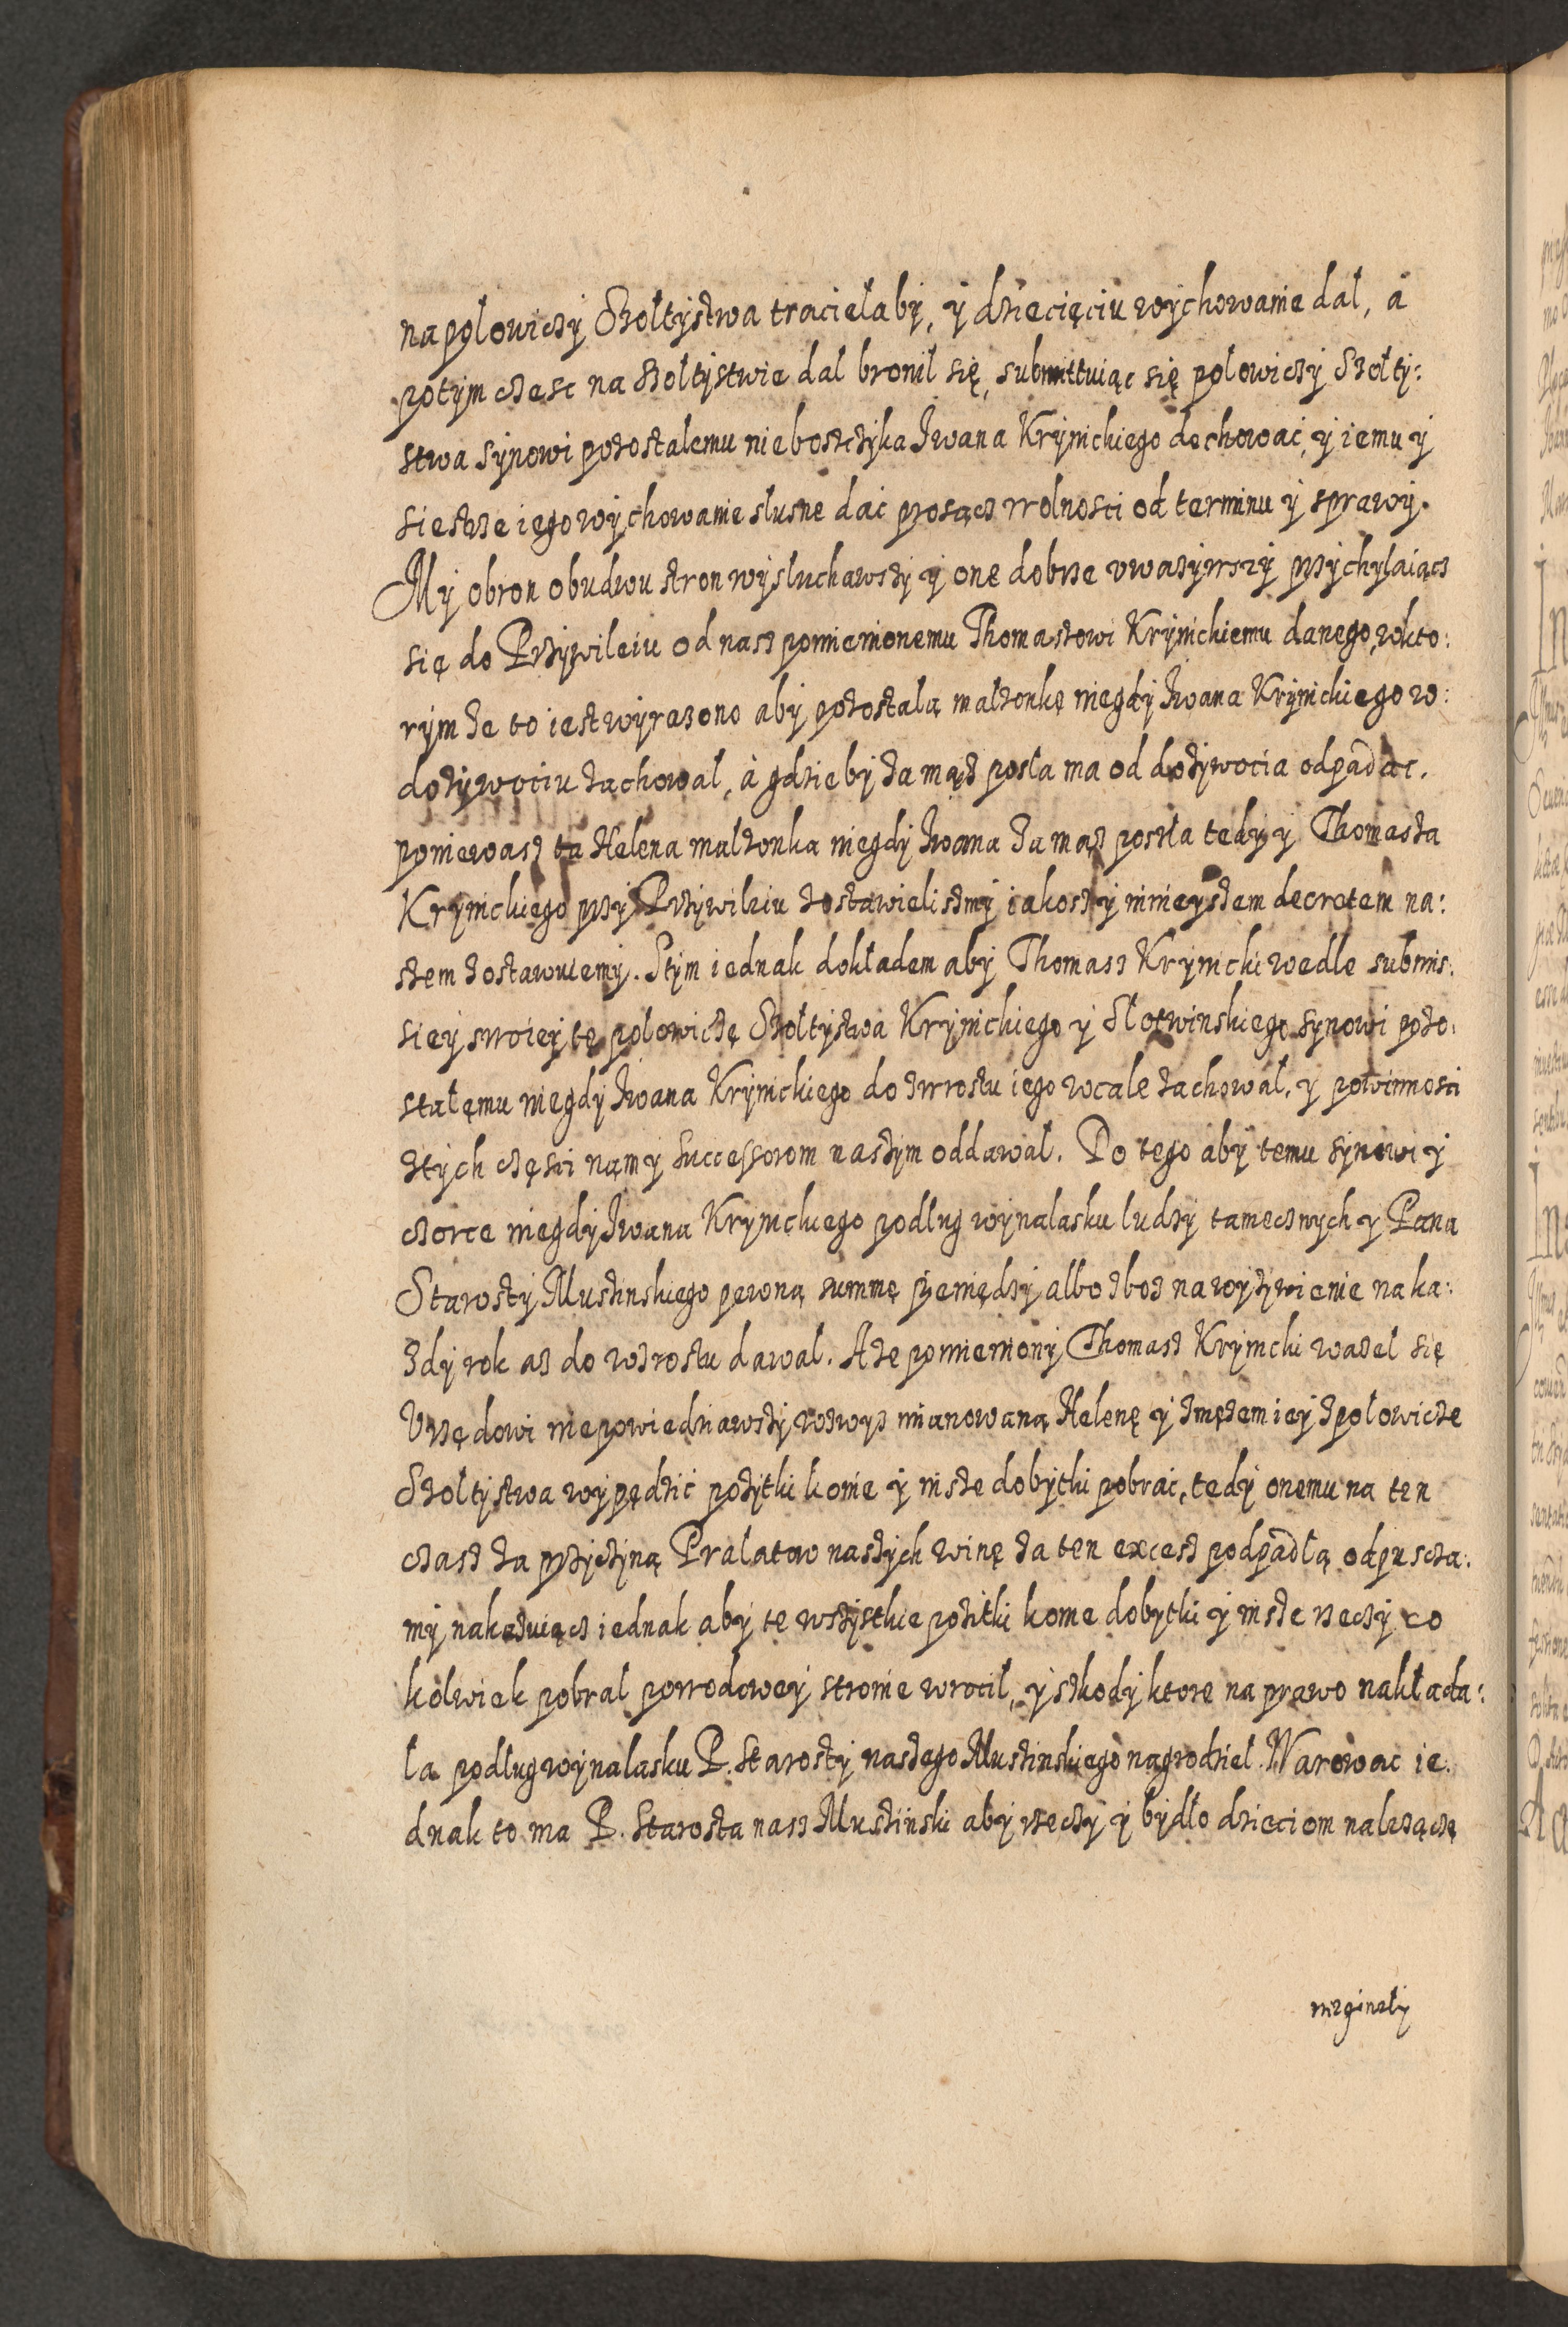 na polowiczy Szoltystwa tracielaby, y dziecięciu wychowanie dal, a
potym czesc na szoltystwie dal bronil się, submittuiąc się polowiczy Szolty:
stwa synowi pozostalemu nieboszczyka Iwana Krynickiego dochować, y iemu y
siestrze iego wychowanie slusne dać prosącz wolności od terminu y sprawy.
My obron obudwu stron wysluchawszy y one dobrze uważywszy przychylaiącz
się do Przywileiu od nasz pomienionemu Thomaszowi Krynickiemu danego, w kto:
rym że to iest wyrazono aby pozostalą malzonkę niegdy Iwana Krynickiego w:
dozywociu zachowal, à gdzieby za mąsz posla ma od dożywocia odpadac.
poniewasz ta Helena malzonka niegdy Iwana za masz poszla tedy y Thomasza
Krynickiego przy Przywileiu zostawielismy iakosz y ninieyszem decretem na:
szem zostawuiemy. Stym iednak dokladem aby Thomasz Krynicki wedle submis:
siey swoiey te polowiczę Szoltystwa Krynickiego y Slotwinskiego synowi pozo:
stalęmu niegdy Iwana Krynickiego do zwrostu iego wcale zachowal, y powinnosci
ztych częsci nąm y Successorom naszym oddawal. Do tego aby temu synowi y
czorce niegdy Iwana Krynickiego podlug wynalasku ludzy tamecznych y Pana
Starosty Muszinskiego pewną summę pieniędzy albo zboż na wyżywienie na ka:
zdy rok az do wzrostu dawal. A że pomieniony Thomasz Krynicki wazel się
Urzędowi niepowiedziawszy zwysz mianowaną Helenę y zmężem iey z polowicze
Szoltystwa wypędzić pożytki konie y insze dobytki pobrać, tedy onemu na ten
czasz za przyczyną Pralatow naszych winę za ten excesz podpadlą odpuscza:
my nakazuiącz iednak aby te wszystkie pożitki konie dobytki y insze rzeczy co
kolwiek pobral powodowey stronie wrocil, y szkody ktore na prawo naklada:
la podlug wynalasku P. Starosty naszego Muszinskiego nagrodziel. Warować ie:
dnak to ma P. Starosta nasz Muszinski aby rzeczy y bydlo dzieciom należączę
nieginęly